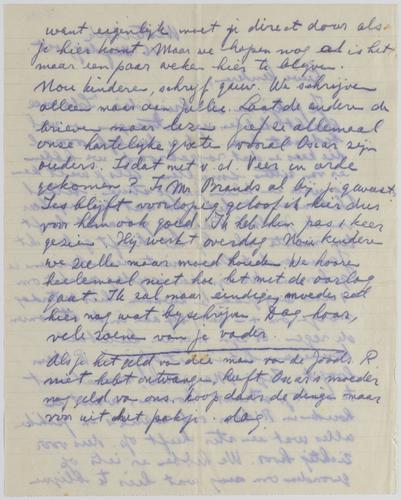 want eigenlijk moet je direct door als
je hier komt. Maar we hopen nog al is het
maar een paar weken hier te blijven.
Nou kinderen, schrijf gauw. We schrijven
alleen maar aan jullie. Laat de anderen de
brieven maar lezen. Geef ze allemaal
onze hartelijke groeten vooral Oscar zijn
ouders. Is dat met v.d. Veer in orde
gekomen? Is Mr. Brands al bij je geweest.
Jes blijft voorlopig geloof ik hier dus
voor hem ook goed. Ik heb hem pas 1 keer
gezien. Hij werkt overdag. Nou kinderen
we zullen maar moed houden. We horen
heelemaal niet hoe het met de oorlog
gaat. Ik zal maar eindigen moeder zal
hier nog wat bijschrijven. Dag hoor,
vele zoenen van je vader.
Als je het geld van die man van de Joods. R
niet hebt ontvangen heeft Oscar's moeder
nog geld van ons. Koop daar de dingen maar
voor uit het pakje. dag.